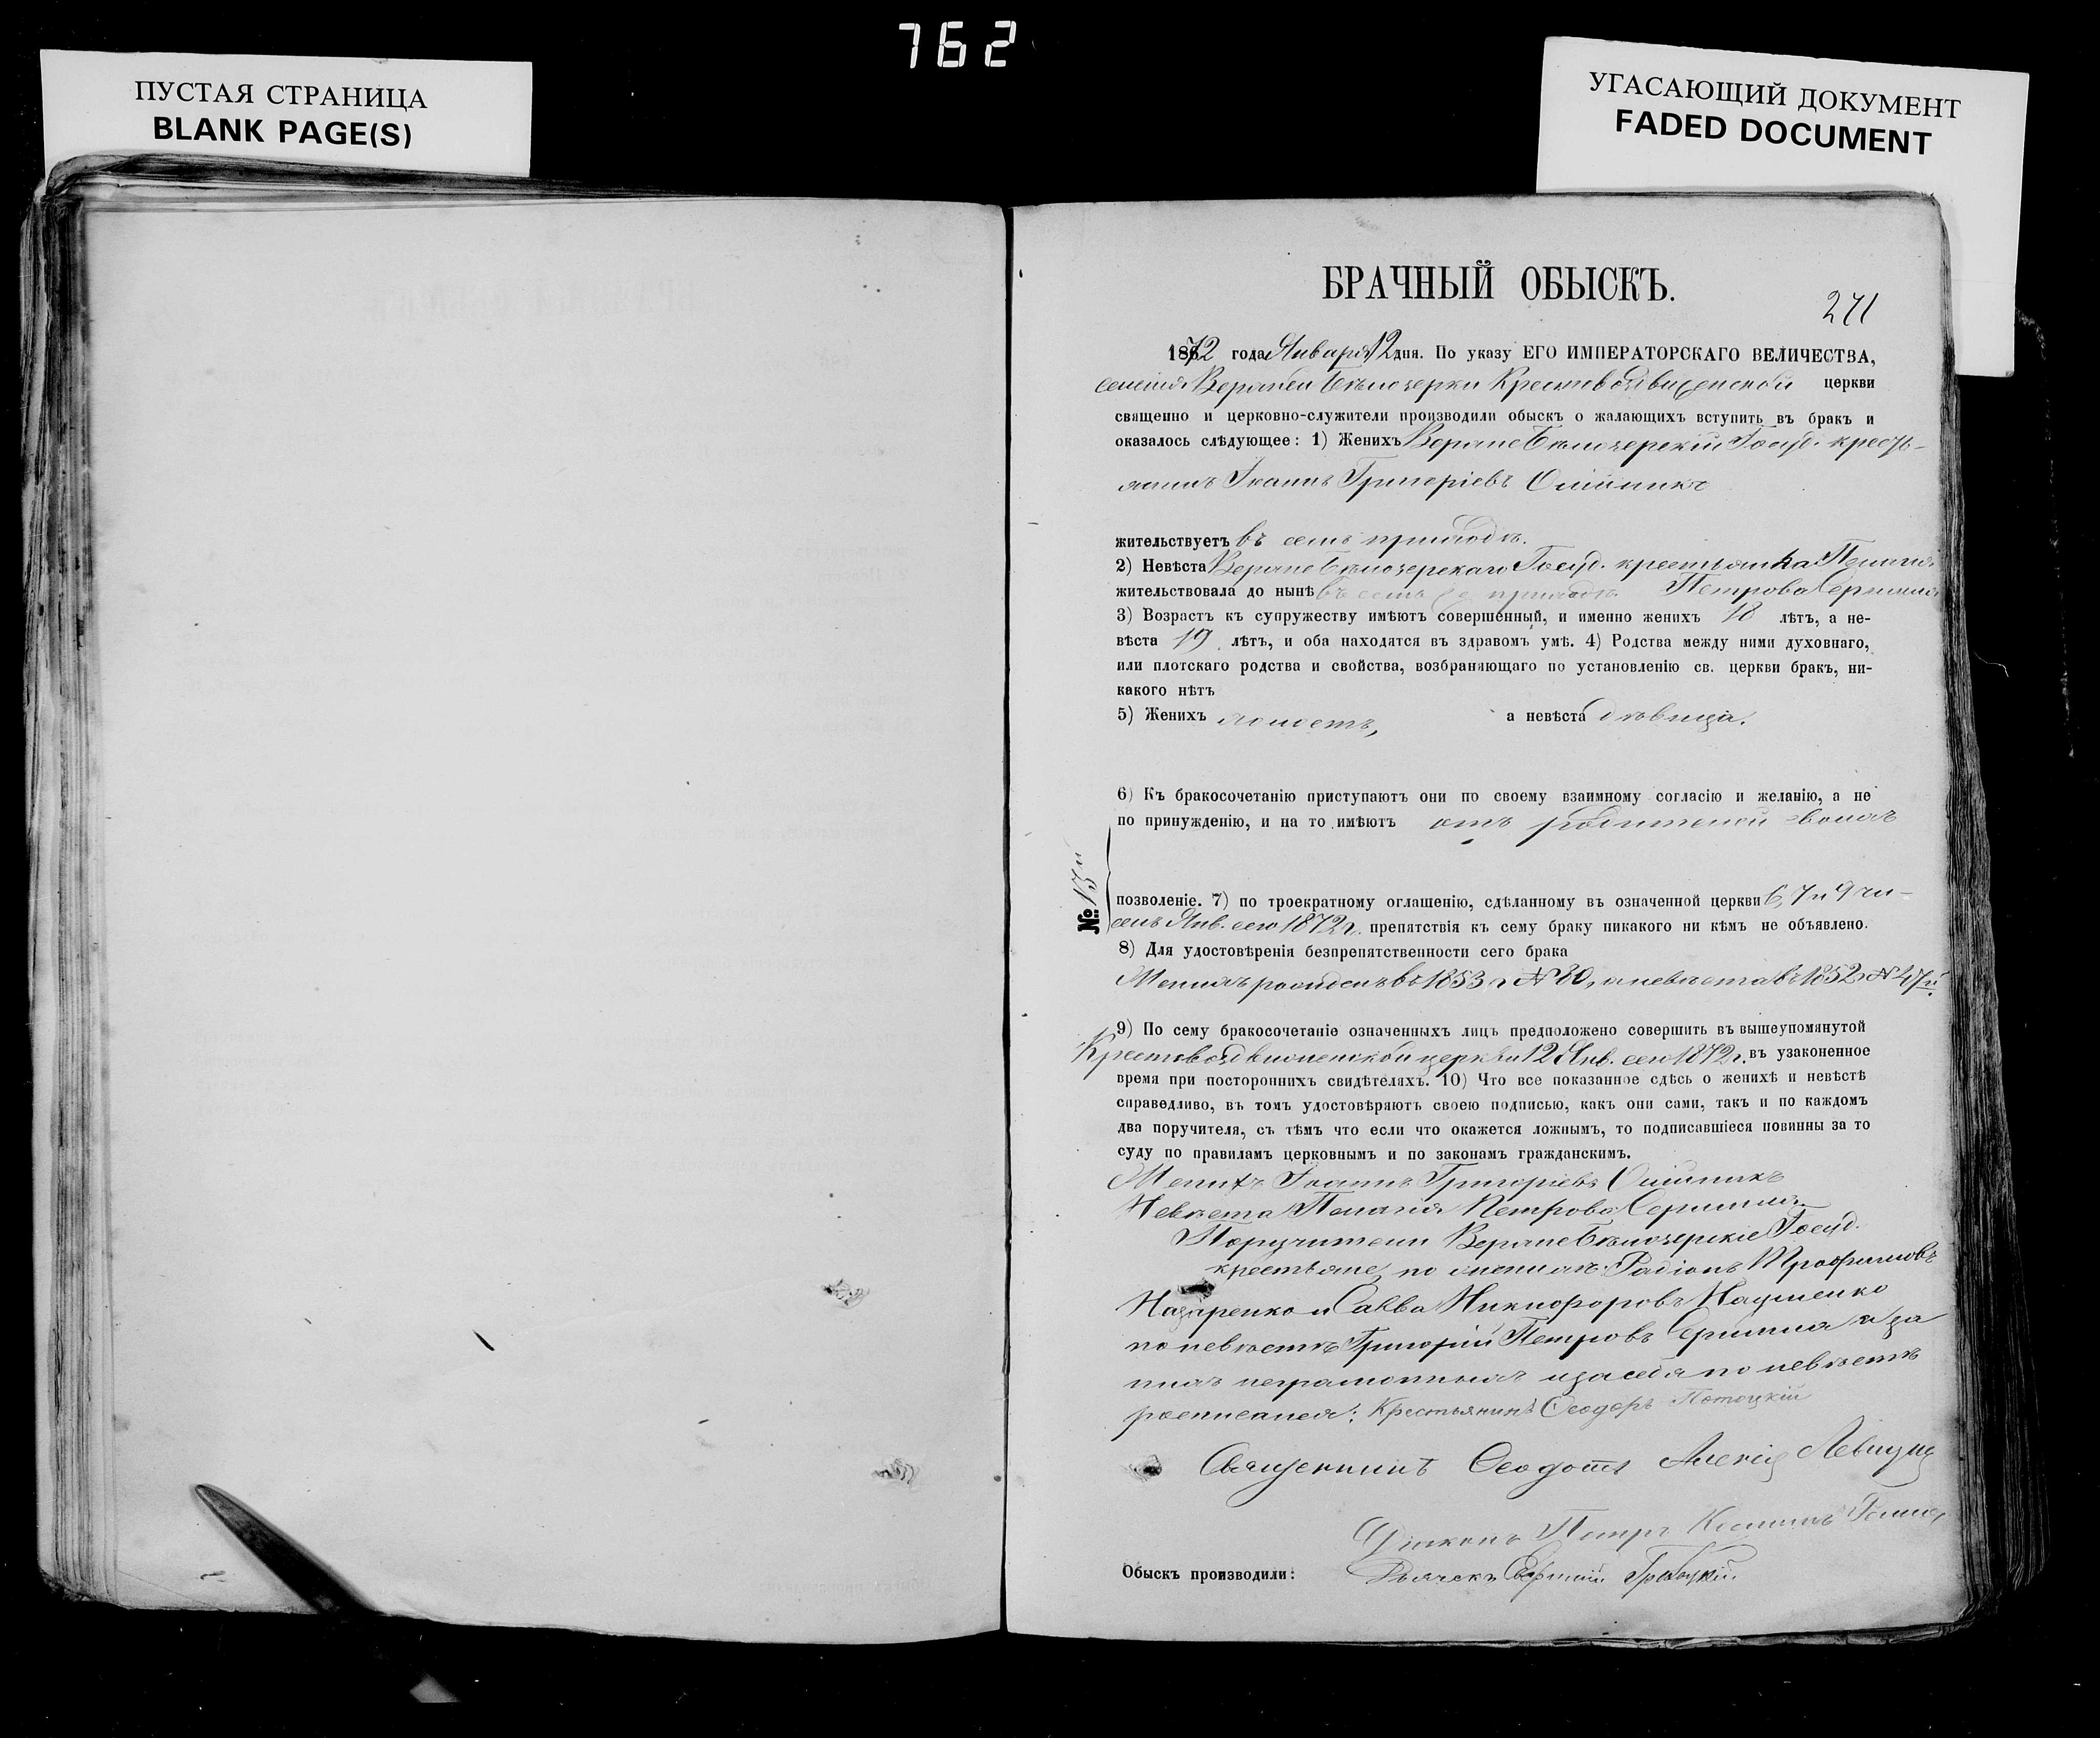 762
ПУСТАЯ СТРАНИЦА
BLANK PAGE(S)
УГАСАЮЩИЙ ДОКУМЕНТ
FADED DOCUMENT
БРАЧНЫЙ ОБЫСКЪ.
271
1872 года Января 12 дня. По указу ЕГО ИМПЕРАТОРСКАГО ВЕЛИЧЕСТВА,
селенія Верхней Бѣлозерки Крестовоздвиженской церкви
священно и церковно-служители производили обыскъ о жалающихъ вступить въ бракъ и
оказалось слѣдующее: 1) Женихъ Верхнебѣлозерскій Госуд. кресть-
янинъ Іоаннъ Григоріевъ Олійникъ
жительствуетъ въ семъ приходѣ.
2) Невѣста Верхнебѣлозерскаго Госуд. крестьянка Пелагія
жительствовала до нынѣ въ семъ же приходѣ Петрова
3) Возрастъ къ супружеству имѣютъ совершенный, и именно женихъ 18 лѣтъ, а не-
вѣста 19 лѣтъ, и оба находятся въ здравомъ умѣ. 4) Родства между ними духовнаго,
или плотскаго родства и свойства, возбраняющаго по установленію св. церкви бракъ, ни-
какого нѣтъ
5) Женихъ холостъ, а невѣста дѣвица.
6) Къ бракосочетанію приступаютъ они по своему взаимному согласію и желанію, а не
по принужденію, и на то имѣютъ отъ родителей своихъ
№ 13й
позволеніе. 7) по троекратному оглашенію, сдѣланному въ означенной церкви 6, 7 и 9 чи-
селъ Янв. сего 1872 г. препятствія къ сему браку никакого ни кѣмъ не объявлено.
8) Для удостовѣренія безпрепятственности сего брака
Женихъ рожденъ въ 1853 г № 80, а невѣста въ 1852 г № 47й.
9) По сему бракосочетаніе означенныхъ лицъ предположено совершить въ вышеупомянутой
Крестовоздвиженской церкви 12 Янв. сего 1872 г. въ узаконенное
время при постороннихъ свидѣтеляхъ. 10) Что все показанное сдѣсь о женихѣ и невѣстѣ
справедливо, въ томъ удостовѣряютъ своею подписью, какъ они сами, такъ и по каждомъ
два поручителя, съ тѣмъ что если что окажется ложнымъ, то подписавшіеся повинны за то
суду по правиламъ церковнымъ и по законамъ гражданскимъ.
Женихъ Іоаннъ Григоріевъ Олійникъ
Невѣста Пелагія Петрова
Поручители Верхнебѣлозерскіе Госуд.
крестьяне, по женихѣ: Радіонъ Трофимовъ
Назаренко и Савва Никифоровъ Науменко
по невѣстѣ Григорій Петровъ и за
нихъ неграмотныхъ и за себя по невѣстѣ
росписался: Крестьянинъ Ѳеодоръ Потоцкій
Священникъ Ѳеодотъ Алексіевъ Левицкій
Діаконъ Петръ
Обыскъ производили: Дьячекъ Евфимій